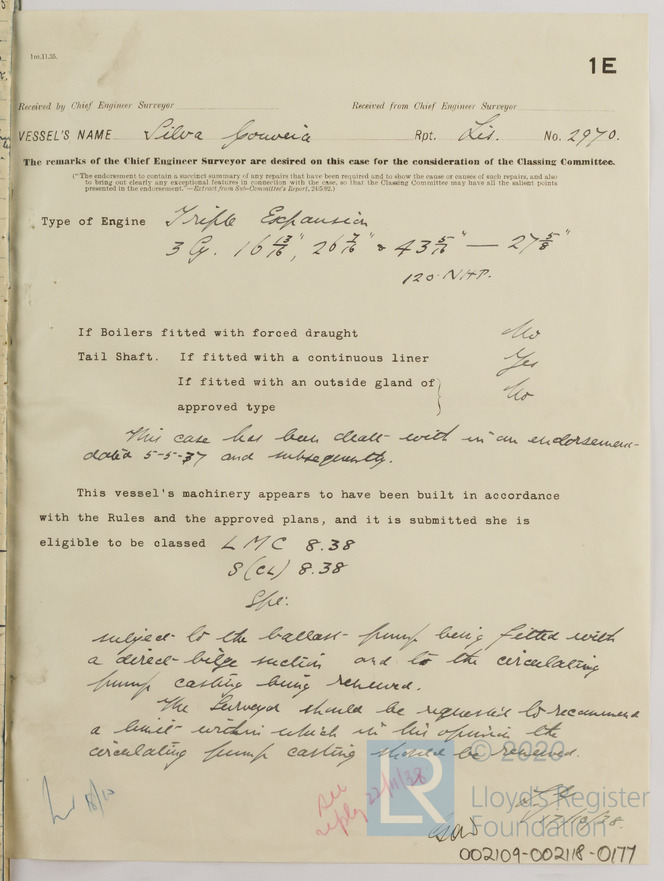 1m,11,35.
1E
Received by Chief Engineer Surveyor
Received from Chief Engineer Surveyor
VESSEL'S NAME Silva Gouveia Rpt. Lis. No. 2970.
The remarks of the Chief Engineer Surveyor are desired on this case for the consideration of the Classing Committee.
("The endorsement to contain a succinct summary of any repairs that have been required and to show the cause or causes of such repairs, and also
to bring out clearly any exceptional features in connection with the case, so that the Classing Committee may have all the salient points
presented in the endorsement."—Extract from Sub-Committee's Report, 24/5/92.)
Type of Engine Triple Expansion
3 Cy. 16 13/16", 26 7/16" & 43 5/16" — 27 5/8"
120 NHP.
If Boilers fitted with forced draught No
Tail Shaft. If fitted with a continuous liner Yes
If fitted with an outside gland of } No
approved type
This case has been dealt with in an endorsement
dated 5-5-37 and subsequently.
This vessel's machinery appears to have been built in accordance
with the Rules and the approved plans, and it is submitted she is
eligible to be classed LMC 8.38
S(CL) 8.38
Spt:
subject to the ballast pump being fitted with
a direct bilge suction and to the circulating
pump casting being renewed.
The Surveyor should be requested to recommend
a limit within which in his opinion the
circulating pump casting should be renewed.
18/10
See
reply 22/11/38
17/10/38.
© 2020
LR
Lloyd's Register
Foundation
002109-002118-0177